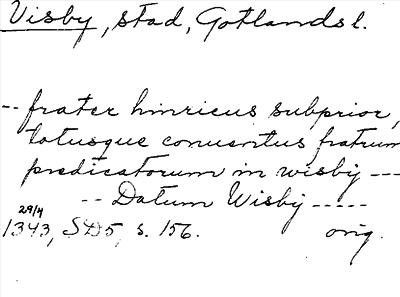 Visby, stad, Gotlandsl.
-- frater hinricus subprior,
totusque conuentus fratrum
predicatorum in wisby ---
-- Datum Wisby -----
29/4
1343, SD5, s. 156. orig.